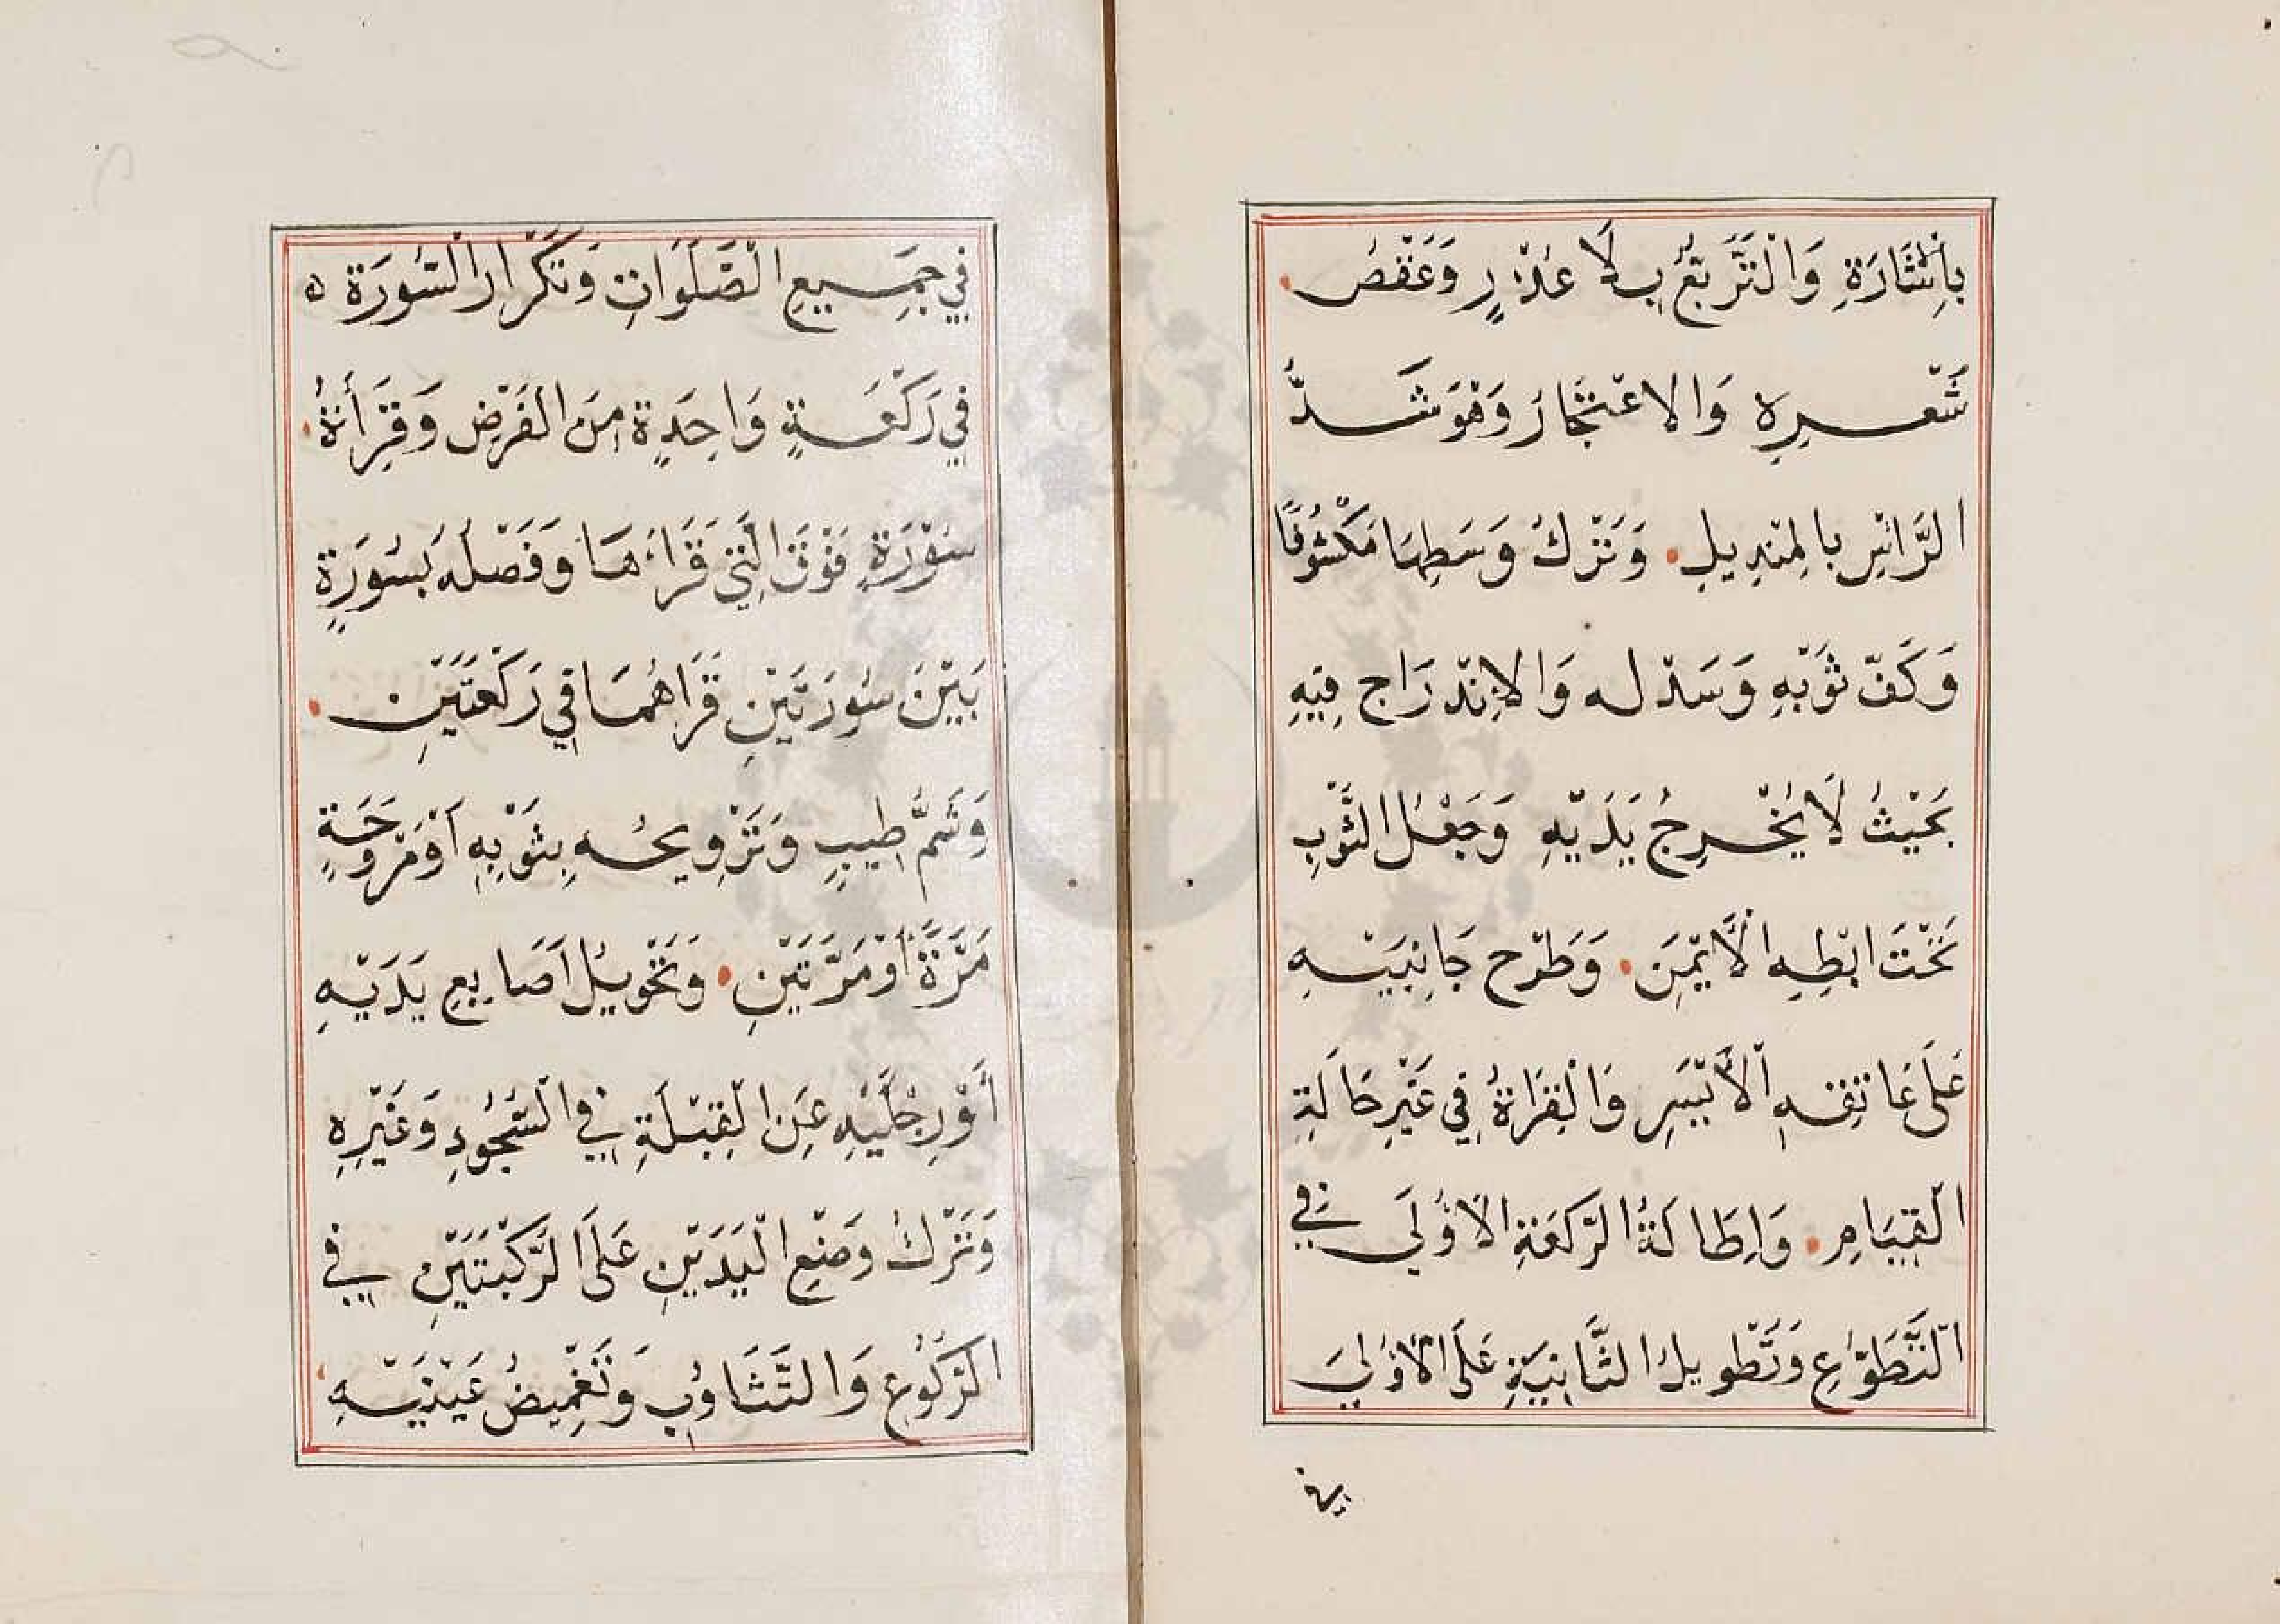 بِاِلْشَارَةِ وَالْتَّرَبُّعُ بِلَا عُذْرٍ وَعَقْصُ
شَعْرِهِ وَالاعْتِجَارَ وَهُوَ شَدُّ
الرَّاسِ بِالمِنْدِيلِ وَتَرْكُ وَسَطِهَا مَكْشُوفًا
وَكَفّ ثَوْبِهِ وَسَدْلـه وَالاِنْدْرَاج فِيهِ
بَحَيْثُ لَا يُخْرِجُ يَدَيْهِ وَجَعْلُ الثَّوْبِ
تَحْتَ ابْطِهِ الْأَيْمَنِ وَطَرْح جَانِبَيْهِ
عَلَى عَاتِقِهِ الْأَيْسَرِ وَالْقِرَاةُ فِي غَيْرِ حَالَةِ
الْقِيَامِ وَاِطَالَةُ الرَّكعَةِ الاُوْلَى فِي
التَّطَوُّعِ وَتَطْوِيلُ الثَّانِيَةِ عَلَى الْأُوْلَى
في
فِي جَمِيعِ الْصَّلَوَاتِ وَتَكْرَار الْسُّورَة ه
فِي رَكْعَةٍ وَاحِدَةٍ مِنَ الْفَرْضِ وَقِرَأَةُ
سُوْرَةٍ فَوْقَ الَّتِي قَرَاءَهَا وَفَصْلُه بَسُورَةٍ
بَيْنَ سُورَتَيْنِ قَرَاهُمَا فِي رَكْعَتَيْنِ
وَشَمُّ طِيبٍ وَتَرْوِيحُهِ بِثَوْبِهِ اَوْ مَرْوَحَةٍ
مَرَّةً أَوْ مَرَّتَيْنِ وَتَحْوِيلُ اَصَابِعِ يَدَيْهِ
أَوْ رِجْلَيْهِ عَنِ الْقِبْلَةِ فِي الْسُّجُودِ وَغَيْرِهِ
وَتَرْكُ وَضْعِ الْيَدَيْنِ عَلَى الرُّكْبَتَيْنِ فِي
الرُّكُوعِ وَالتَّثَاوُبِ وَتَغْمِيضُ عَيْنَيْهِ